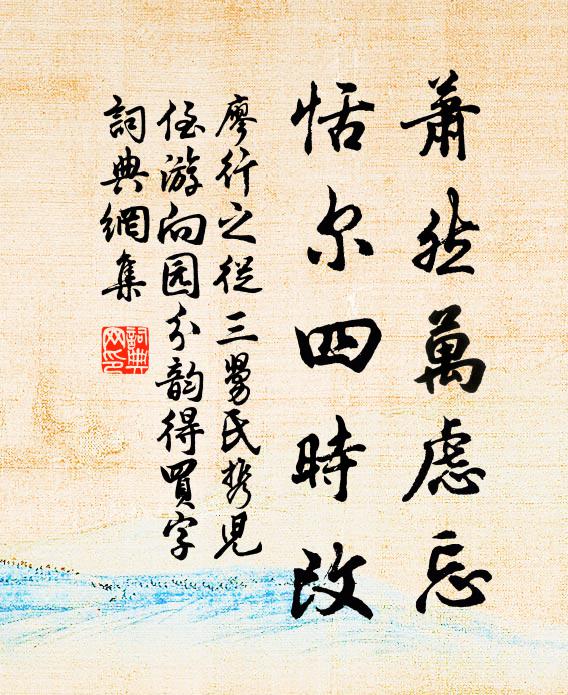 蕭然萬慮忘
恬尔四時改
廖行之從三舅氏携児
侄游向园分韵得買字
詞典網集
詞典網印